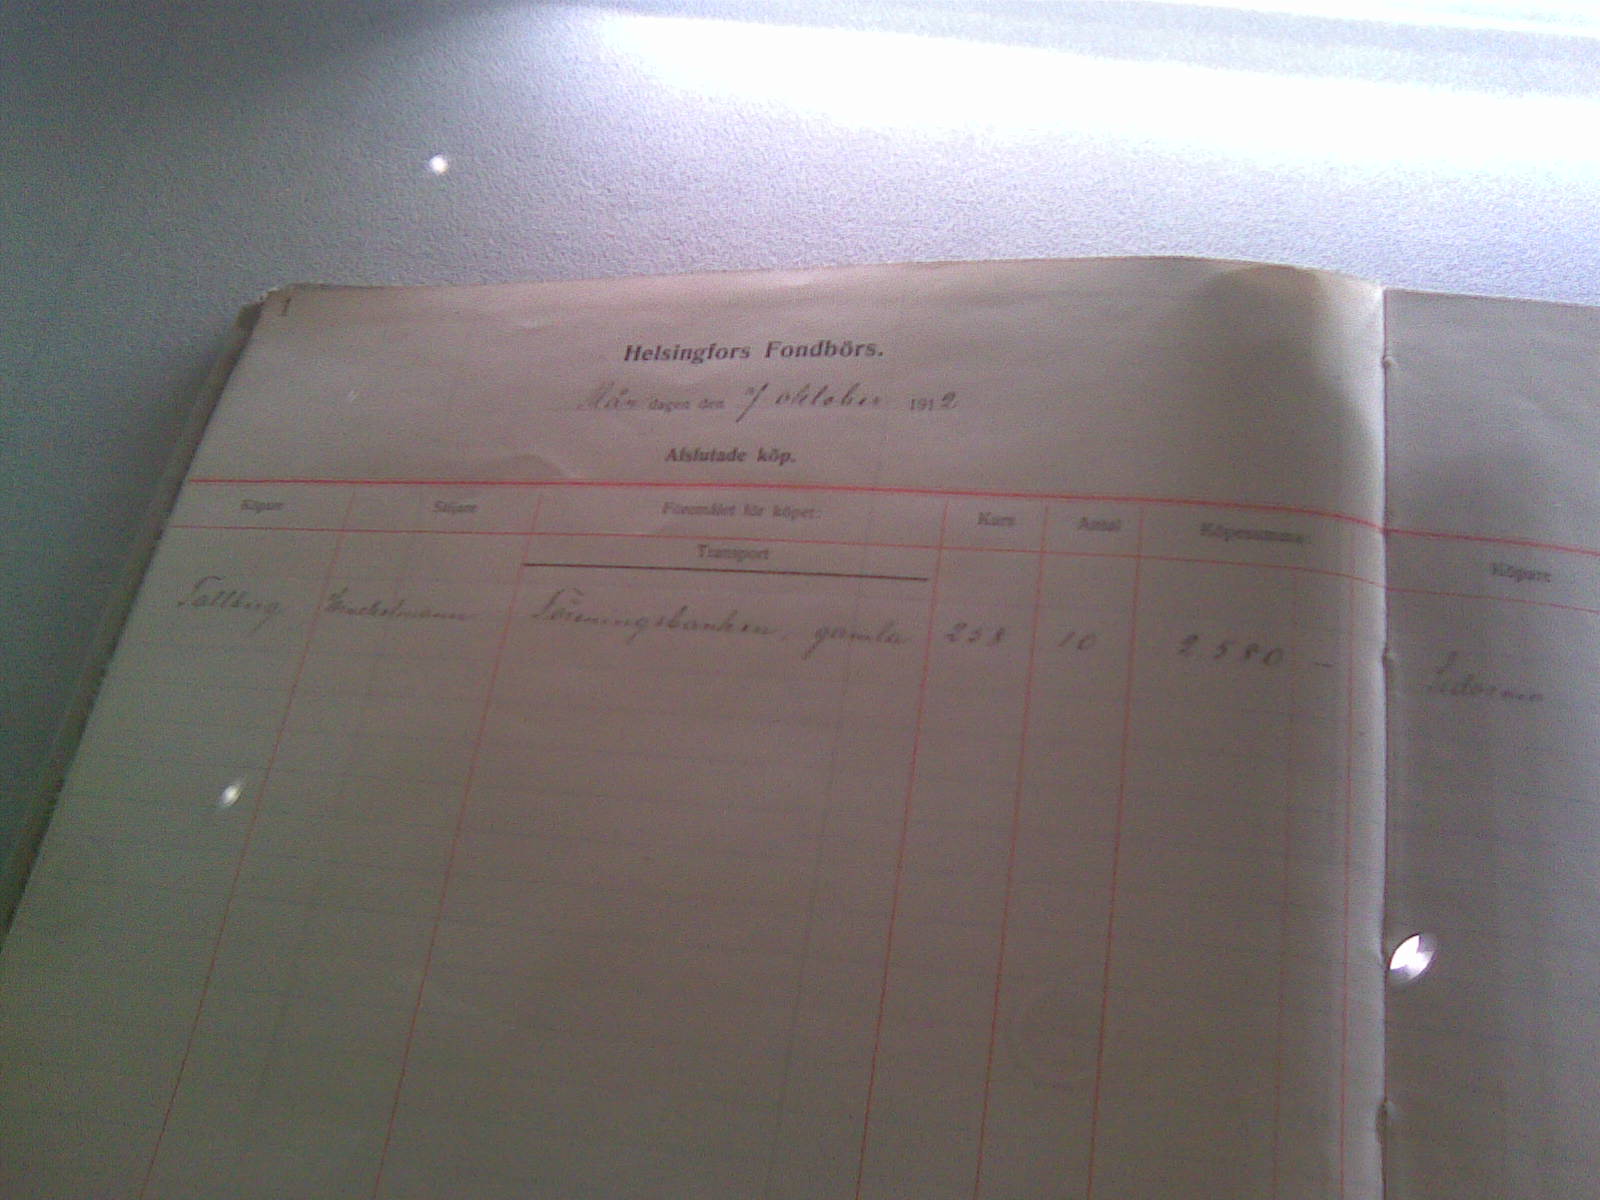 1
Helsingfors Fondbörs.
Mån dagen den 7/ oktober 1912
Afslutade köp.
Köpare Säljare Föremålet för köpet: Kurs Antal Köpesumma:
Transport
Tallberg Föreningsbanken, gamla 258 10 2580 –
Köpare